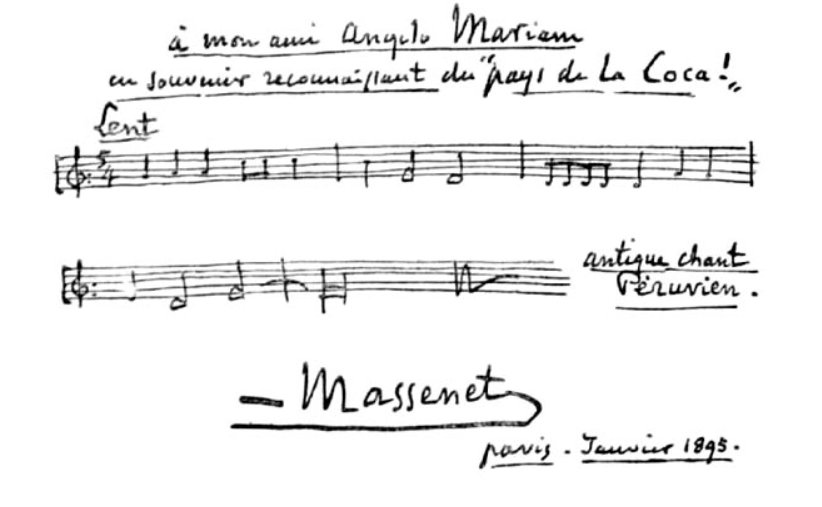 à mon ami Angelo Mariani
en souvenir reconnaissant du "pays de La Coca!"
Lent
5/4
antique chant
Péruvien.
— Massenet
paris - Janvier 1895.